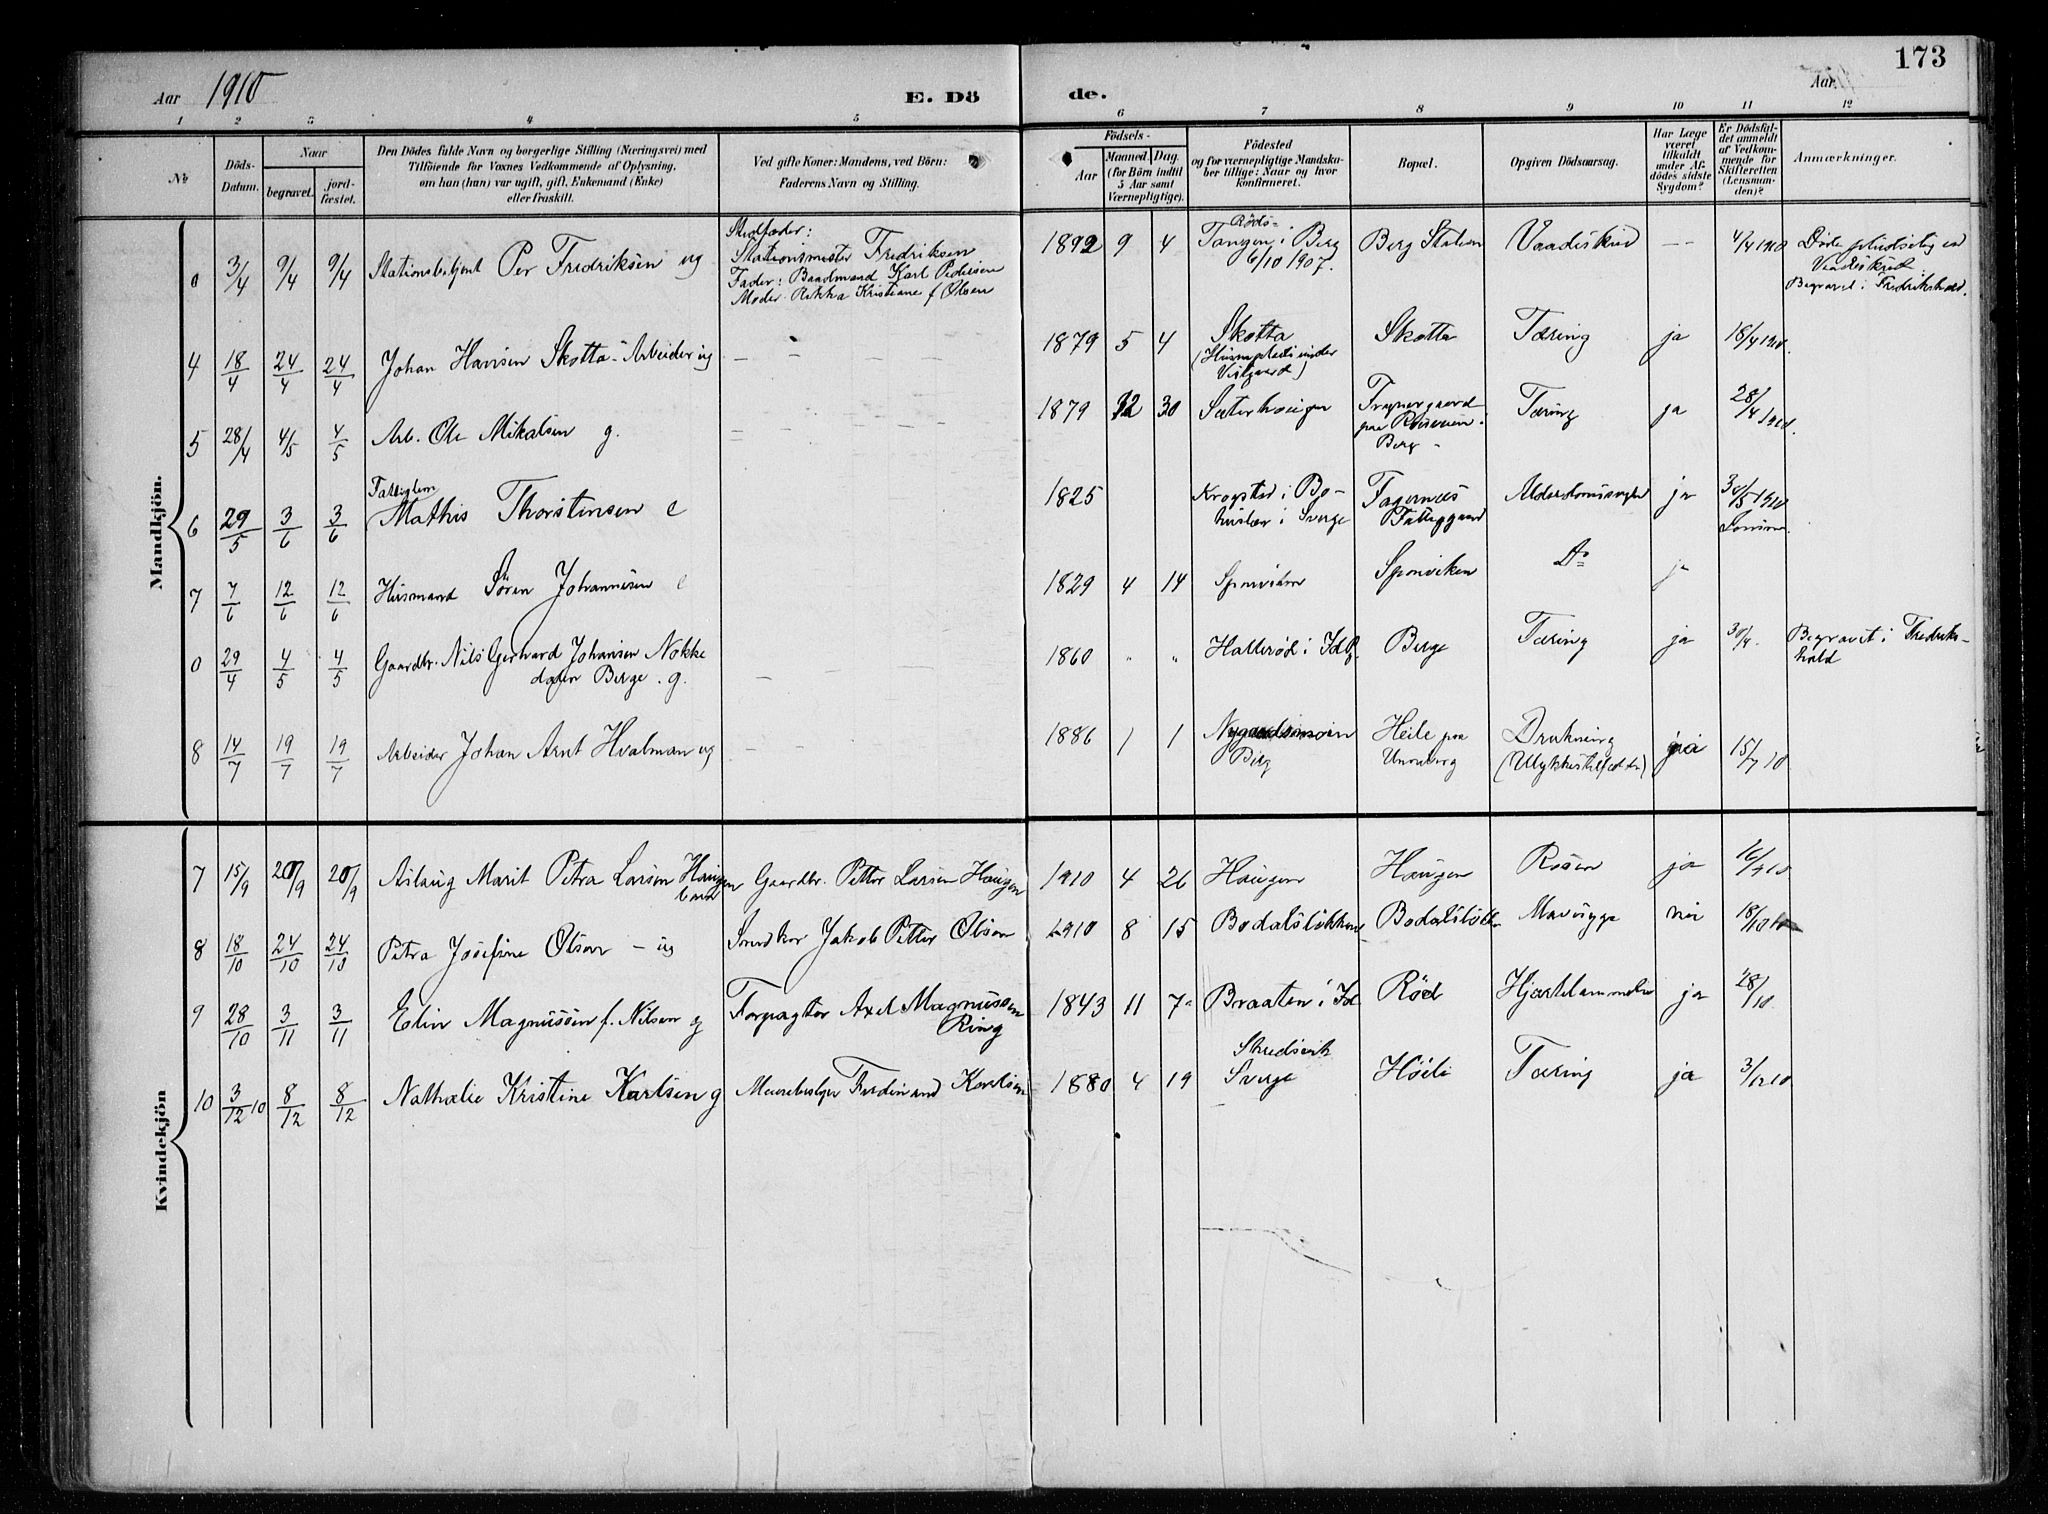 173
Aar 1910
E. Dö
de.
Aar
1 2 3 4 5 6 7 8 9 10 11 12
No
Döds-Datum.
Naar
begravet. jordfæstet.
Den Dödes fulde Navn og borgerlige Stilling (Næringsvei) med
Tilföiende for Voxnes Vedkommende af Oplysning,
om han (hun) var ugift, gift, Enkemand (Enke)
eller fraskilt.
Ved gifte Koner: Mandens, ved Börn:
Faderens Navn og Stilling.
Födsels-
Aar
Maaned. Dag.
(for Börn indtil
5 Aar samt
Værnepligtige).
Födested
og for værnepligtige Mandska-
ber tillige: Naar og hvor
konfirmeret.
Bopæl.
Opgiven Dödsaarsag.
Har Læge
været
tilkaldt
under Af-
dödes sidste
Sygdom?
Er Dödsfal-
det anmeldt
af Vedkom-
mende for
Skifteretten
(Lensman-
den)?
Anmærkninger.
Mandkjön.
0 3/4 9/4 9/4 Stationsbetjent Per Fredriksen ug
Stedfader:
Stationsmester Fredriksen
Fader: Baadmand Karl Pedersen
Moder Rikka Kristiane f Olsen
1892 9 4 Röds-
Tangen i Berg
6/10 1907.
Berg Station Vaadeskud — 4/4 1910
Döde pludselig ved
Vaadeskud
Begravet i Fredrikshald.
4 18/4 24/4 24/4 Johan Hansen Skotta - Arbeider ug — — — —
1879 5 4 Skotta
(Husmandsplads under
Vestgaard)
Skotta Tæring ja 18/4 1910.
5 28/4 4/5 4/5 Arb. Ole Mikalsen g.
1879 12 30 Sæterhaugen
Berg
Tæring ja 28/4 1910.
6 29/5 3/6 3/6 Fattiglem
Mathis Thorstensen e
1825 Krogstad i Bo-
huslæn i Sverge
Fagernæs
Fattiggaard
Alderdomssvaghed ja 30/5 1910
7 7/6 12/6 12/6 Husmand Sören Johannesen e
1829 4 14 Sponviken Sponviken Do ja
0 29/4 4/5 4/5 Gaardbr. Nils Gerhard Johansen Nokke
dalen Berge. g.
1860 " " Hallerød i Idd Berge Tæring ja 30/4.
Begravet i Fredriks-
hald
8 14/7 19/7 19/7 Arbeider Johan Arnt Hvalman ug — — —
1886 1 1 Nygaardsmoen
Berg
Heile paa
Unneberg
Drukning
(Ulykkestilfælde)
ja 15/7 10
Kvindekjön
7 15/9 20/9 20/9 Aslaug Marit Petra Larsen Haugen
barn
Gaardbr. Petter Larsen Haugen
1910 4 26 Haugen Haugen Rosen ja 16/9 10
8 18/10 24/10 24/10 Petra Josefine Olsen — ug
Smed Jakob Petter Olsen
1910 8 15 Bodalsløkken Bodalsløkken Mavesyge nei 18/10 10
9 28/10 3/11 3/11 Elin Magnussen f. Nilsen g
Forpagter Axel Magnussen
Ring
1843 11 7 Braaten i Id Rød Hjertelammelse ja 28/10.
10 3/12 10 8/12 8/12 Nathalie Kristine Karlsen g
Murerbestyr Ferdinand Karlsen
1880 4 19 Skredsvik
Sverge
Höile Tæring ja 3/12 10